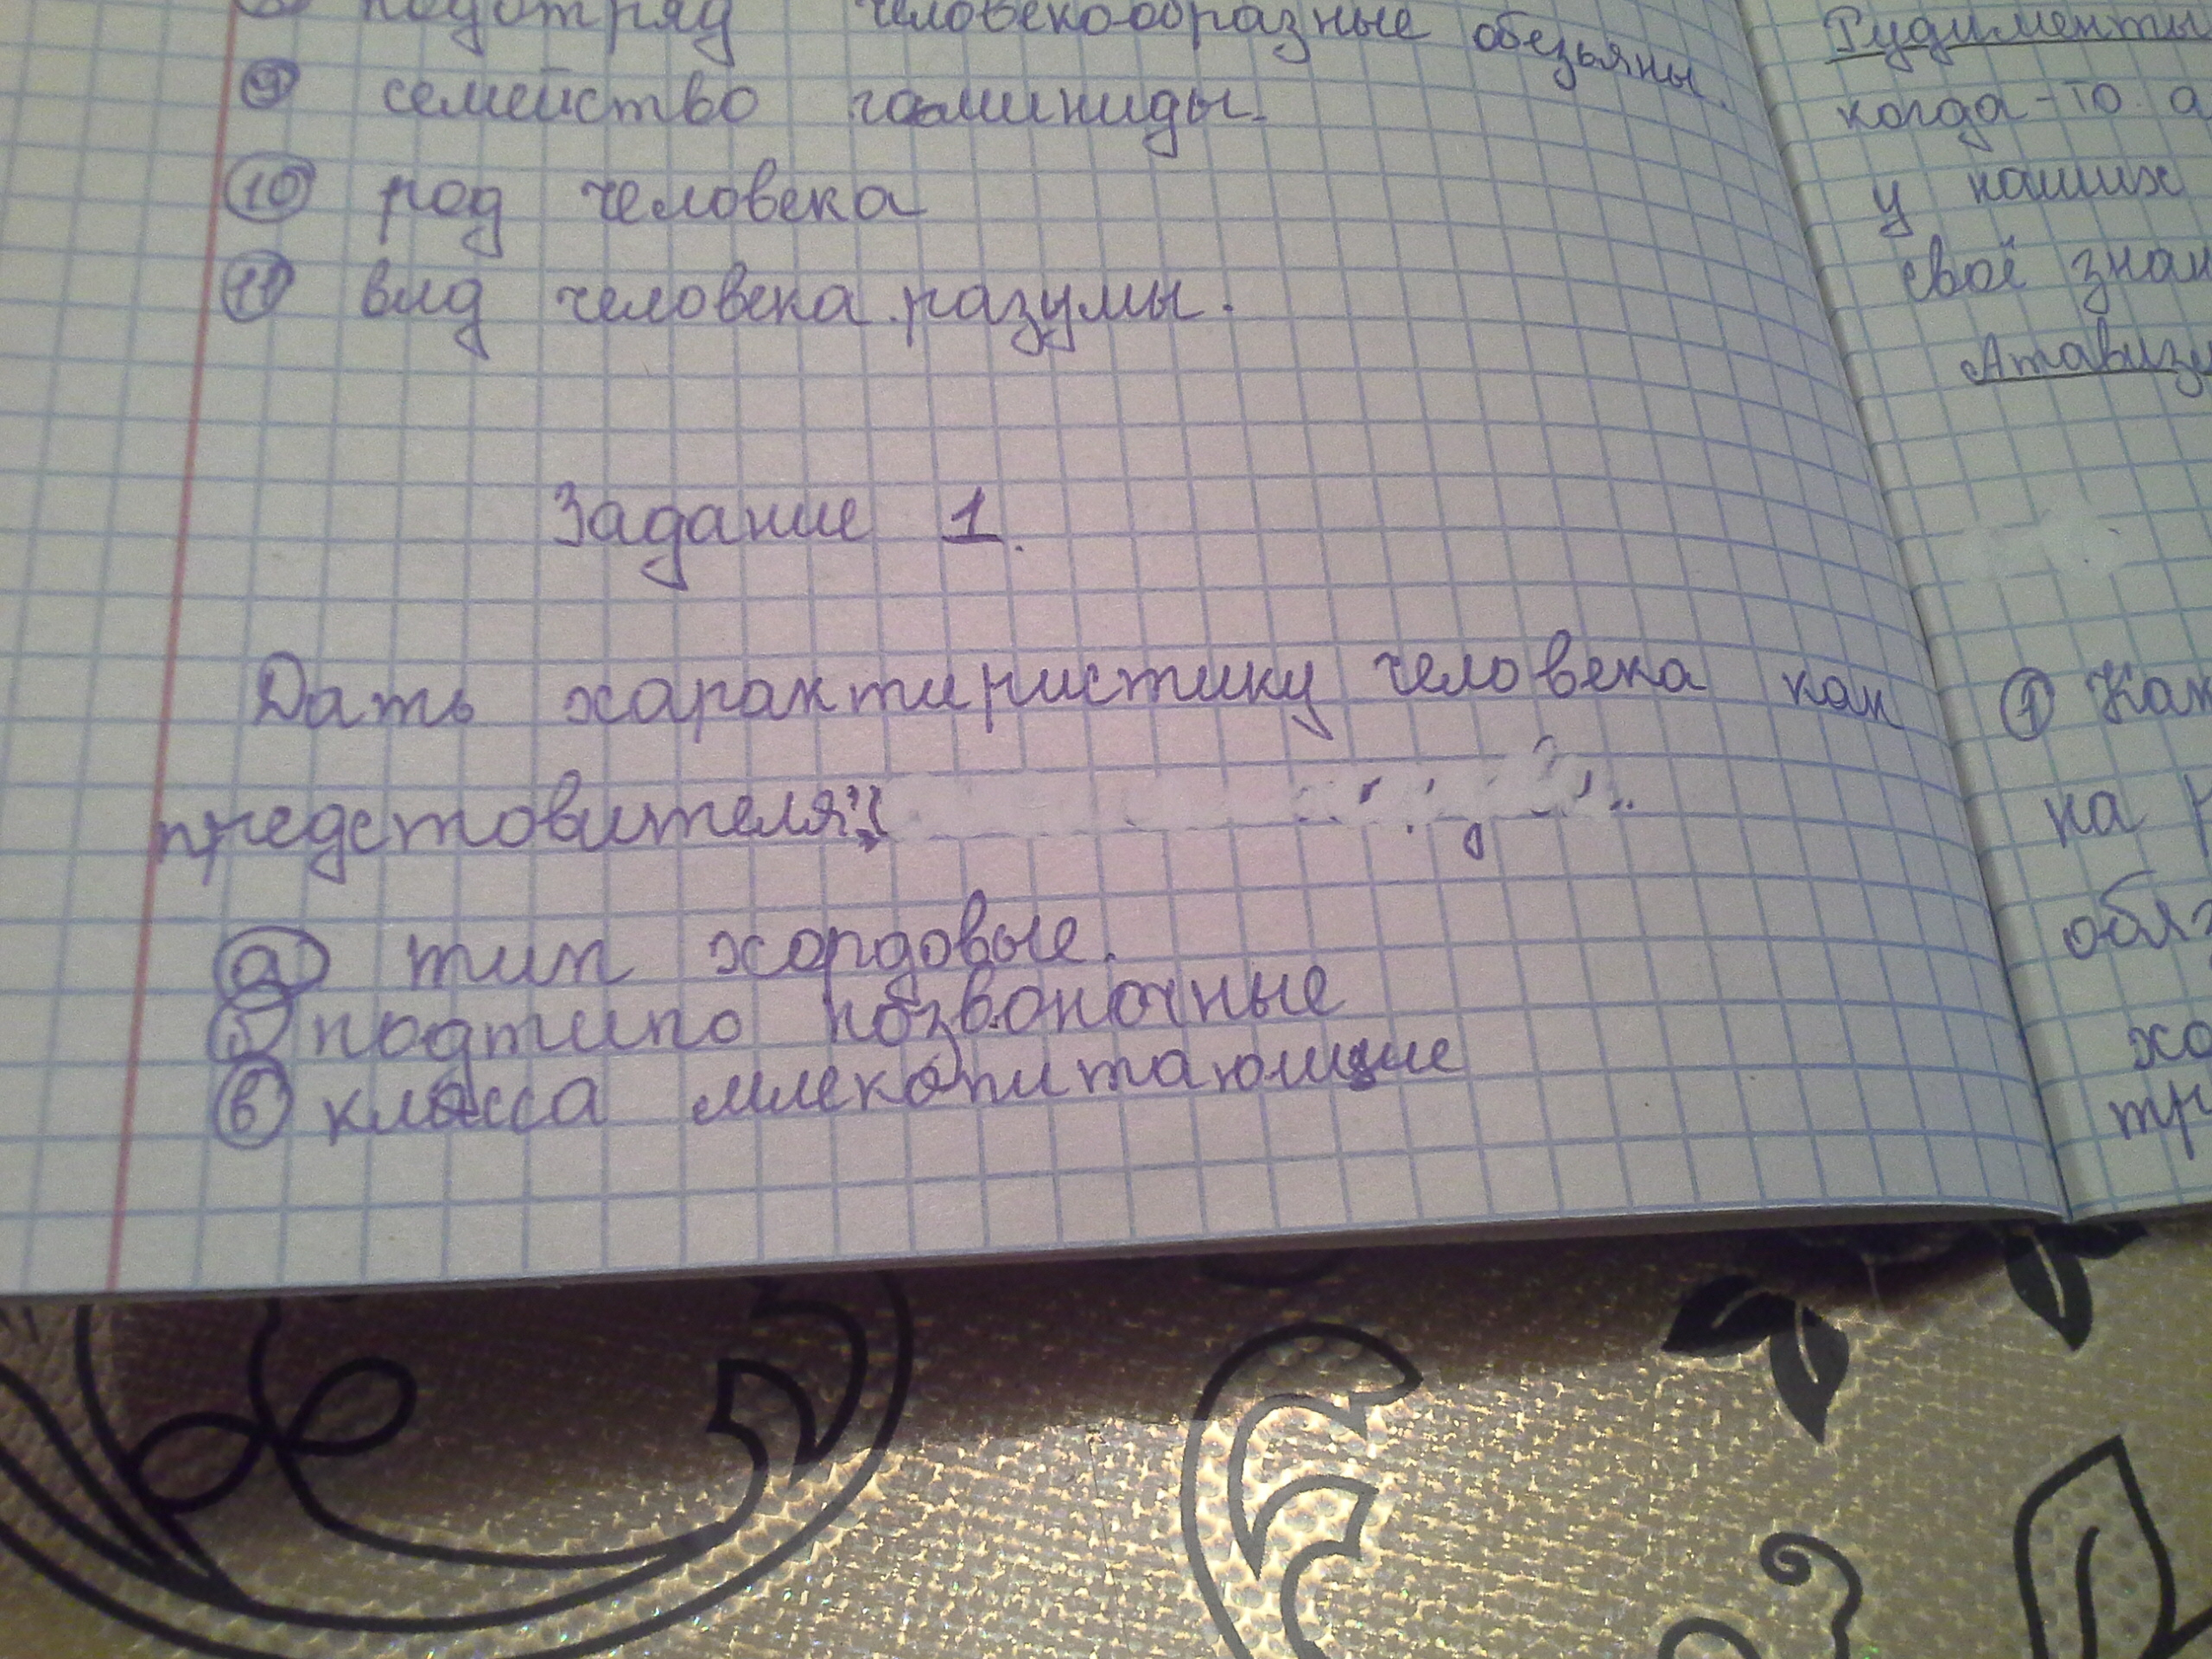 подотряд человекообразные обезьяны.
9 семейство гоминиды.
10 род человека
11 вид человека разумы.
Задание 1.
Дать характиристику человека как
предстовителя:
а) тип хордовые.
б) подтипо позвоночные
в) класса млекопитающие
Рудименты
когда-то а
у наших
своё знач
Атавизм
1 Как
на р
обяз
хо
тр